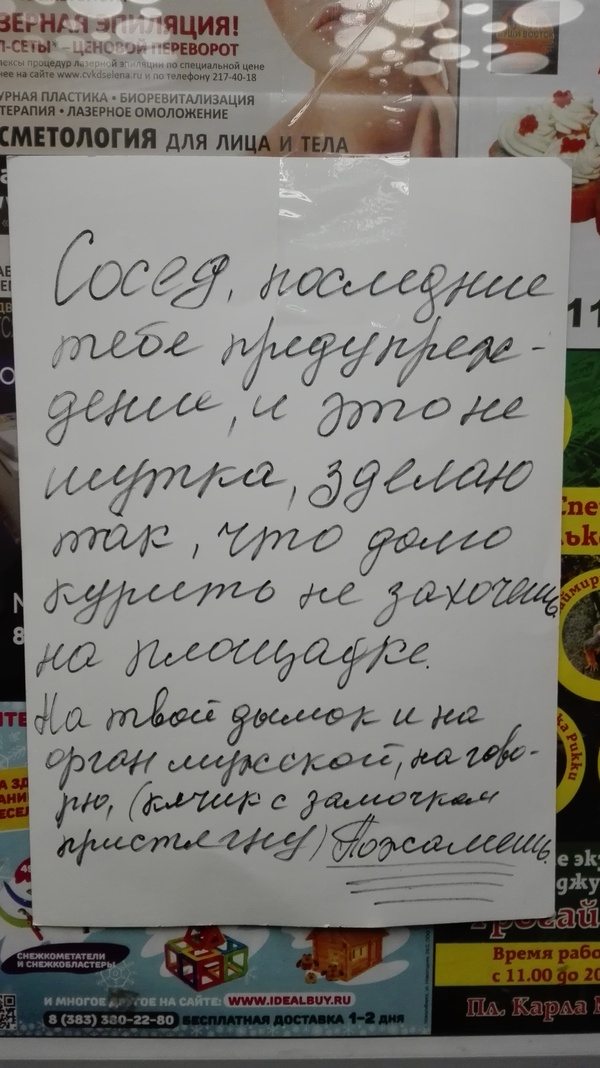 ЗЕРНАЯ ЭПИЛЯЦИЯ!
Л-СЕТЫ* – ЦЕНОВОЙ ПЕРЕВОРОТ
лексы процедур лазерной эпиляции по специальной цене
нее на сайте www.cvkdselena.ru и по телефону 217-40-18
УРНАЯ ПЛАСТИКА • БИОРЕВИТАЛИЗАЦИЯ
ТЕРАПИЯ • ЛАЗЕРНОЕ ОМОЛОЖЕНИЕ
СМЕТОЛОГИЯ ДЛЯ ЛИЦА И ТЕЛА
Сосед, последние
тебе предупреж-
дение, и это не
шутка, зделаю
так, что долго
курить не захочешь
на площадке.
На твой дымок и на
орган мужской, нагово-
рю, (ключик с замочком
пристягну) Пожалеешь
11
СНЕЖКОМЕТАТЕЛИ
И СНЕЖКОБЛАСТЕРЫ
И МНОГОЕ ДРУГОЕ НА САЙТЕ: WWW.IDEALBUY.RU
8 (383) 380-22-80 БЕСПЛАТНАЯ ДОСТАВКА 1-2 ДНЯ
Время рабо
с 11.00 до 20
Пл. Карла